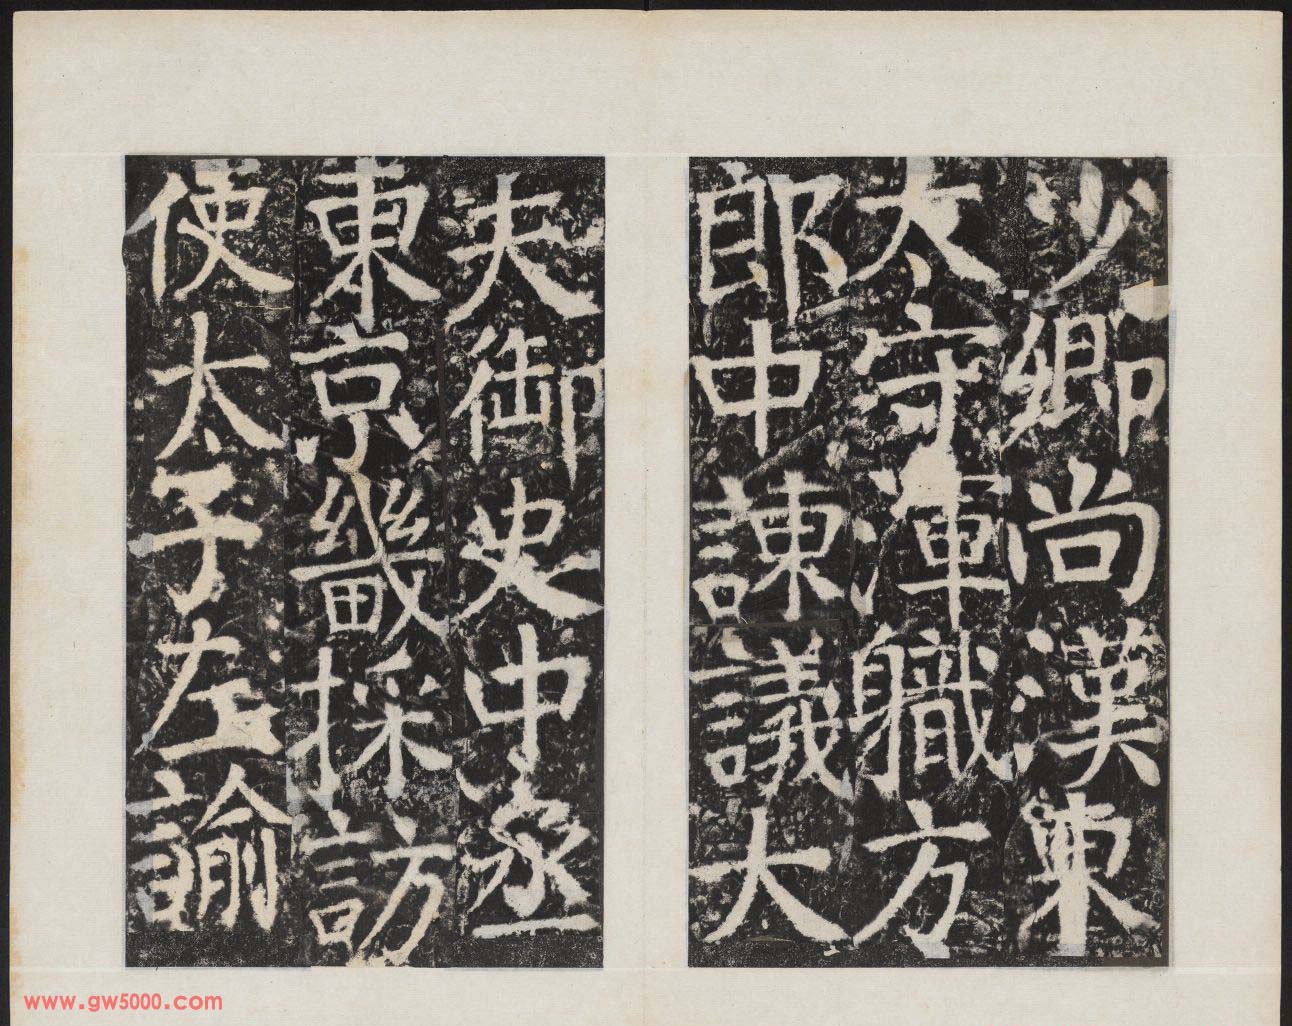 少卿尚漢東
太守渾職方
郎中諫議大
夫御史中丞
東京畿採訪
使太子左諭
www.gw5000.com